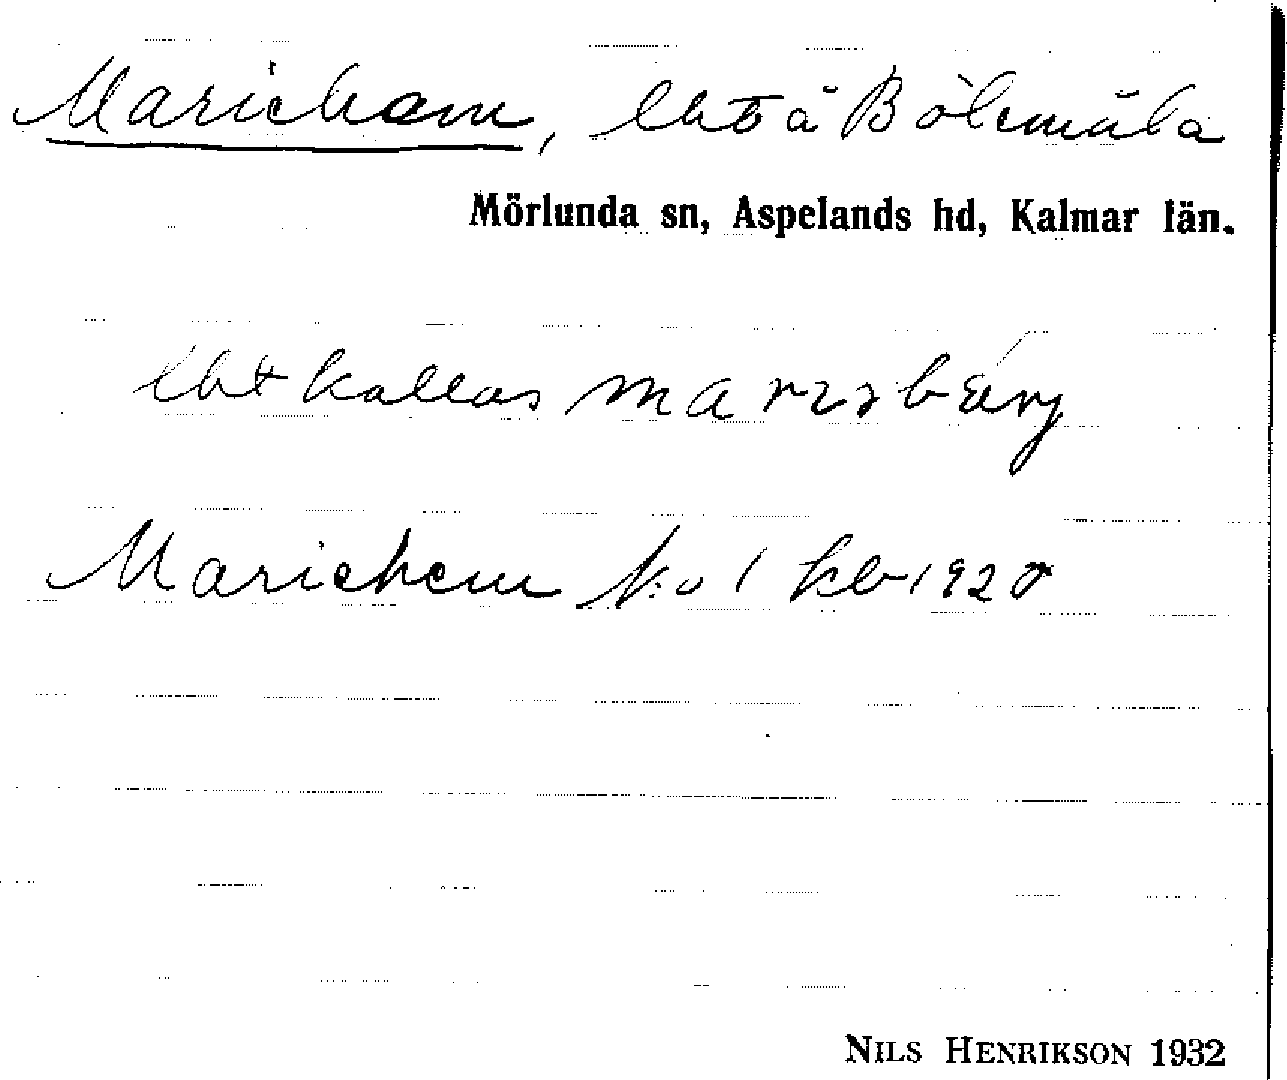 Mariehem, lht å Bölemåla
Mörlunda sn, Aspelands hd, Kalmar län.
lht kallas
Mariehem kb 1920
NILS HENRIKSON 1932